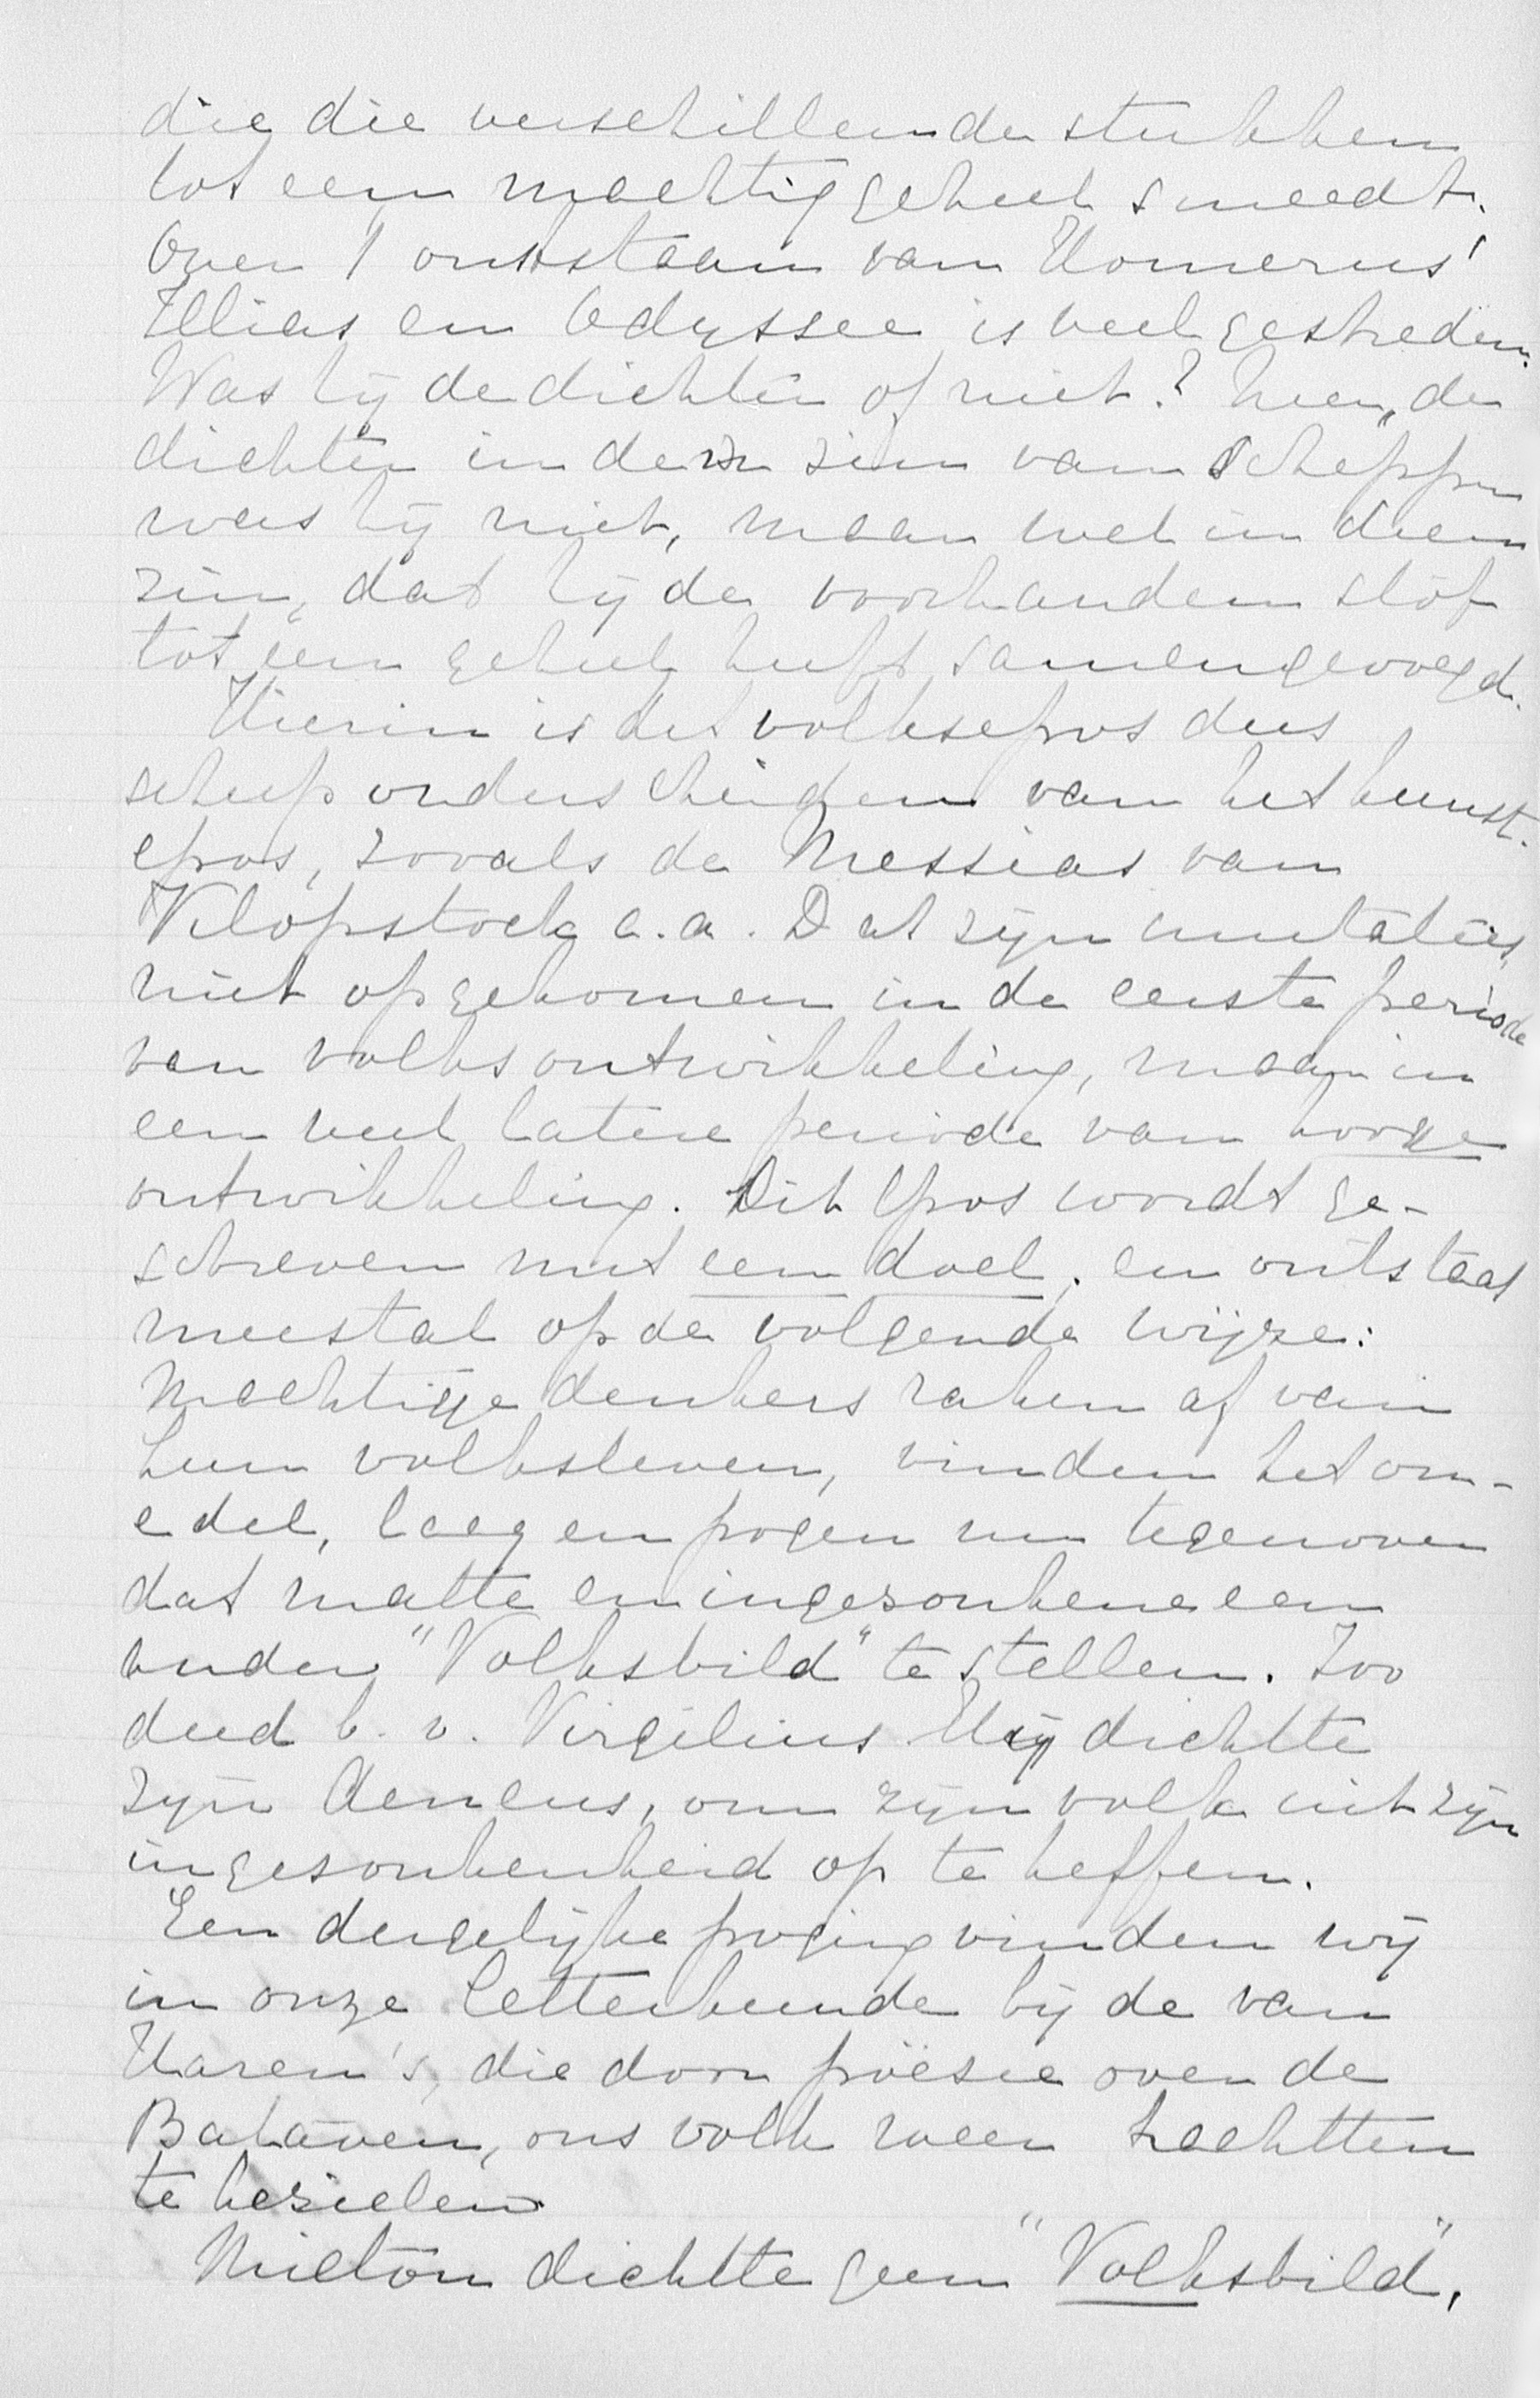 die die verschillende stukken
tot een machtig geheel smeedt.
Over 't ontstaan van Homerus'
Illias en Odyssee is veel gestreden.
Was hij de dichter of niet? Neen, de
dichter in den zin van schepper
was hij niet, maar wel in dien
zin, dat hij de voorhanden stof
tot een geheel heeft samengevoegd.
Hierin is het volksepos dus
scherp onderscheiden van het kunst-
epos, zooals de Messias van
Klopstock e.a. Dat zijn imitaties,
niet opgekomen in de eerste periode
van volksontwikkeling, maar in
een veel latere periode van hooge
ontwikkeling. Dit Epos wordt ge-
schreven met een doel, en ontstaat
meestal op de volgende wijze:
Machtige denkers raken af van
hun volksleven, vinden het on-
edel, laag en pogen nu tegenover
dat matte en ingezonkene een
ander "Volksbild" te stellen. Zoo
deed b.v. Virgilius. Hij dichtte
zijn Aeneas, om zijn volk uit zijn
ingezonkenheid op te heffen.
Een dergelijke poging vinden wij
in onze letterkunde bij de van
Haren's, die door poëzie over de
Bataven, ons volk weer trachtten
te bezielen.
Milton dichtte geen "Volksbild",